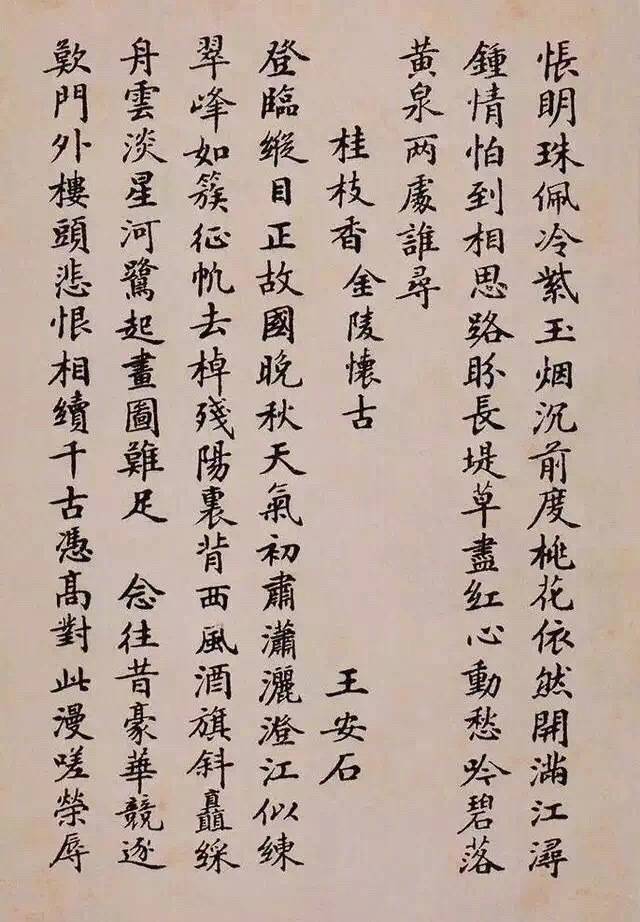 悵明珠佩冷紫玉烟沉前度桃花依然開滿江潯
鍾情怕到相思路盼長堤草盡紅心動愁吟碧落
黃泉两處誰尋
桂枝香 金陵懷古 王安石
登臨縱目正故國晚秋天氣初肅瀟灑澄江似練
翠峰如簇征帆去棹殘陽裏背西風酒旗斜矗綵
舟雲淡星河鷺起畫圖難足 念往昔豪華競逐
歎門外樓頭悲恨相續千古憑高對此漫嗟榮辱